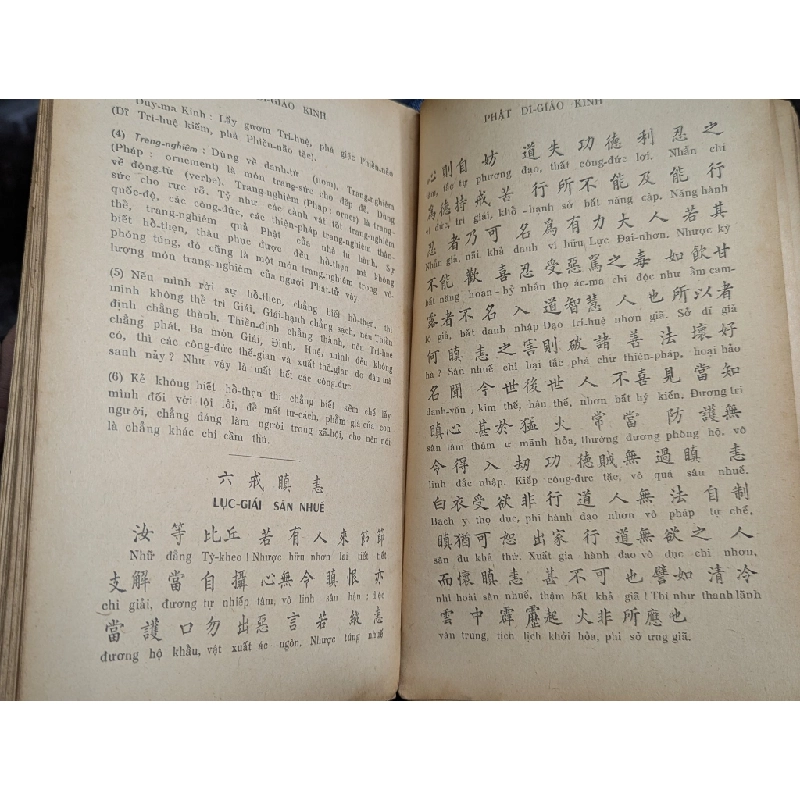 DI-GIÁO KINH
Duy-ma Kinh : Lấy gươm Trí-huệ, phá giặc Phiền-não
(Dĩ Trí-huệ kiếm, phá Phiền-não tặc).
(4) Trang-nghiêm : Dùng về danh-từ (nom), Trang-nghiêm
(Pháp : ornement) là món trang-sức cho đẹp đẽ. Dùng
về động-từ (verbe), Trang-nghiêm (Pháp : orner) là trang-
sức cho rực rỡ. Tỷ như các cảnh vật tốt trang-nghiêm
quốc-độ, các công-đức, các thiện-pháp trang-nghiêm thân-
thể, trang-nghiêm quả Phật của nhà tu hành. Sự
biết hổ-thẹn, thâu phục được đều hổ-thẹn mà không
phóng túng, đó cũng là một món trang-nghiêm trong vô-
lượng món trang-nghiêm của người Phật-tử vậy.
(5) Nếu mình rời sự hổ-thẹn, chẳng biết hổ-thẹn, thì
mình không thể trì Giái, Giái-hạnh chẳng sạch, nên Thiền-
định chẳng thành. Thiền-Định chẳng thành, nên Trí-Huệ
chẳng phát. Ba món Giái, Định, Huệ, mình đều không
có, thì các công-đức thế-gian và xuất thế-gian do đâu mà
sanh này ? Như vậy là mất hết các công-đức.
(6) Kẻ không biết hổ-thẹn thì chẳng biết sửa chế lấy
mình đối với tội lỗi, để mất tư-cách, phẩm giá của con
người, chẳng đáng làm người trong xã-hội, cho nên nói
là chẳng khác chi cầm thú.
六 戒 瞋 恚
LỤC-GIÁI SÂN NHUẾ
汝 等 比 丘 若 有 人 來 節 節
Nhữ đẳng Tỳ-kheo ! Nhược hữu nhơn lai tiết tiết
支 解 當 自 攝 心 無 令 瞋 恨 亦
chi giải, đương tự nhiếp tâm, vô linh sân hận ; diệc
當 護 口 勿 出 惡 言 若 縱 恚
đương hộ khẩu, vật xuất ác ngôn. Nhược túng nhuế
PHẬT DI-GIÁO KINH
心 則 自 妨 道 失 功 德 利 忍 之
tâm, tắc tự phương đạo, thất công-đức lợi. Nhẫn chi
爲 德 持 戒 苦 行 所 不 能 及 能 行
vi đức, trì giái, khổ-hạnh sở bất năng cập. Năng hành
忍 者 乃 可 名 爲 有 力 大 人 若 其
Nhẫn giả, nãi khả danh vi hữu Lực Đại-nhơn. Nhược kỳ
不 能 歡 喜 忍 受 惡 罵 之 毒 如 飲 甘
bất năng hoan-hỷ nhẫn thọ ác-mạ chi độc như ẩm cam-
露 者 不 名 入 道 智 慧 人 也 所 以 者
lộ giả, bất danh nhập Đạo trí-huệ nhơn giã. Sở dĩ giả
何 瞋 恚 之 害 則 破 諸 善 法 壞 好
hà ? Sân nhuế chi hại tắc phá chư thiện-pháp, hoại hảo
名 聞 今 世 後 世 人 不 喜 見 當 知
danh-văn, kim thế, hậu thế, nhơn bất hỷ kiến. Đương tri
瞋 心 甚 於 猛 火 常 當 防 護 無
sân tâm thậm ư mãnh hỏa, thường đương phòng hộ, vô
令 得 入 劫 功 德 賊 無 過 瞋 恚
linh đắc nhập. Kiếp công-đức tặc, vô quá sân nhuế.
白 衣 受 欲 非 行 道 人 無 法 自 制
Bạch y thọ dục, phi hành đạo nhơn vô pháp tự chế,
瞋 猶 可 恕 出 家 行 道 無 欲 之 人
sân du khả thứ. Xuất gia hành đạo vô dục chi nhơn,
而 懷 瞋 恚 甚 不 可 也 譬 如 清 冷
nhi hoài sân nhuế, thậm bất khả giã ! Thí như thanh lãnh
雲 中 霹 靂 起 火 非 所 應 也
vân trung, tích lịch khởi hỏa, phi sở ưng giã.